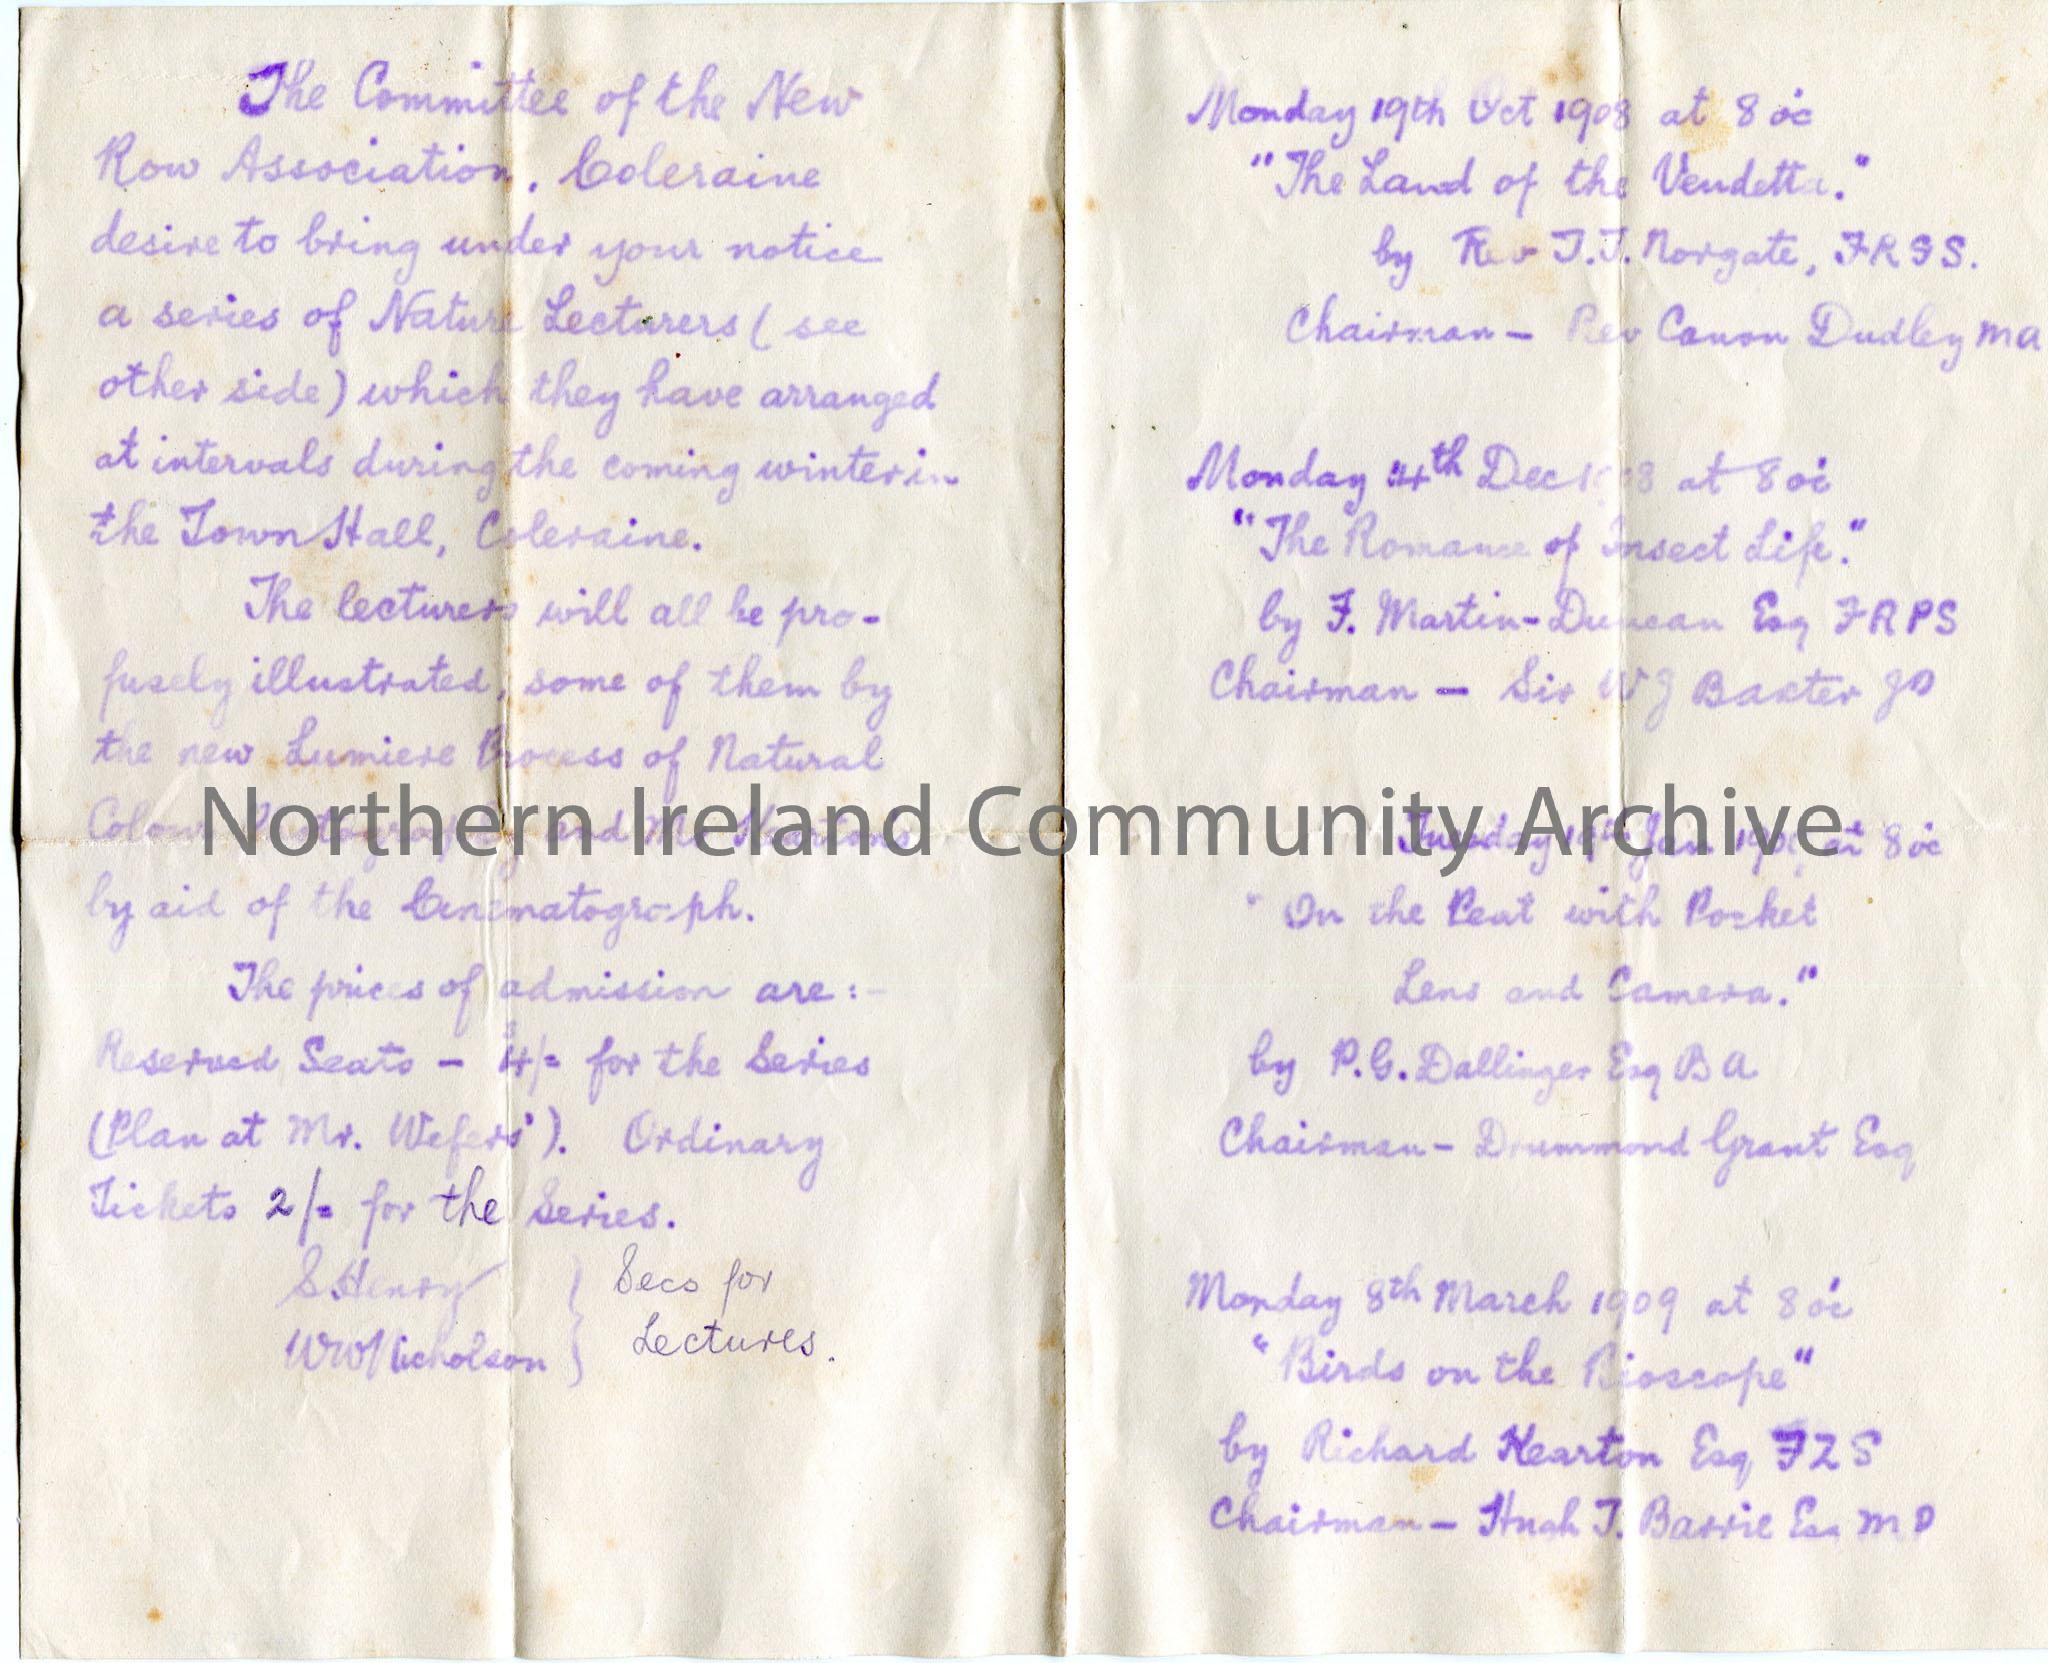 The Committee of the New
Row Association, Coleraine
desire to bring under your notice
a series of Nature Lecturers (see
other side) which they have arranged
at intervals during the coming winter in
the Town Hall, Coleraine.
The lecturers will all be pro-
fusely illustrated, some of them by
the new Lumiere Process of Natural
Colour Photography and Mr Kearton's
by aid of the Cinematograph.
The prices of admission are :-
Reserved Seats - 4/= for the Series
(Plan at Mr. Wefers'). Ordinary
Tickets 2/= for the Series.
S Henry } Secs for
WWNicholson } Lectures.
Monday 19th Oct 1908 at 8 oc
"The Land of the Vendetta."
by Rev T.J. Norgate, FRGS.
Chairman - Rev Canon Dudley MA
Monday 14th Dec 1908 at 8 oc
"The Romance of Insect Life."
by F. Martin-Duncan Esq FRPS
Chairman - Sir WJ Baxter JP
Tuesday 19th Jan 1909 at 8 oc
"On the Peat with Pocket
Lens and Camera."
by P.G. Dallinger Esq BA
Chairman - Drummond Grant Esq
Monday 8th March 1909 at 8 oc
"Birds on the Bioscope"
by Richard Kearton Esq FZS
Chairman - Hugh T. Barrie Esq MP
Northern Ireland Community Archive